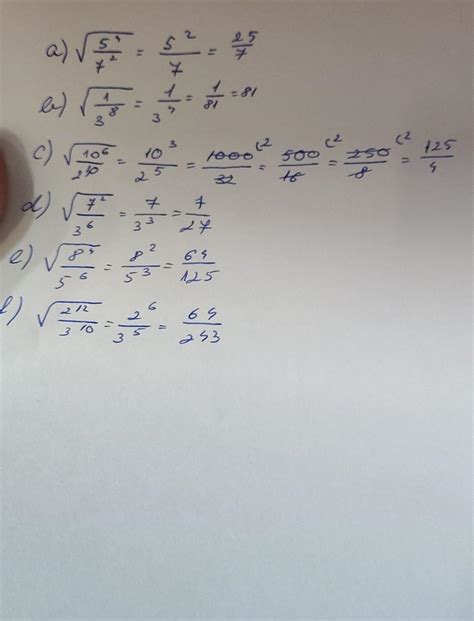 a) √(5⁴/7²) = 5²/7 = 25/7
b) √(1/3⁸) = 1/3⁴ = 1/81 = 81
c) √(10⁶/2¹⁰) = 10³/2⁵ = 1000/32 (2 = 500/16 (2 = 250/8 (2 = 125/4
d) √(7²/3⁶) = 7/3³ = 7/27
e) √(8⁴/5⁶) = 8²/5³ = 64/125
f) √(2¹²/3¹⁰) = 2⁶/3⁵ = 64/243